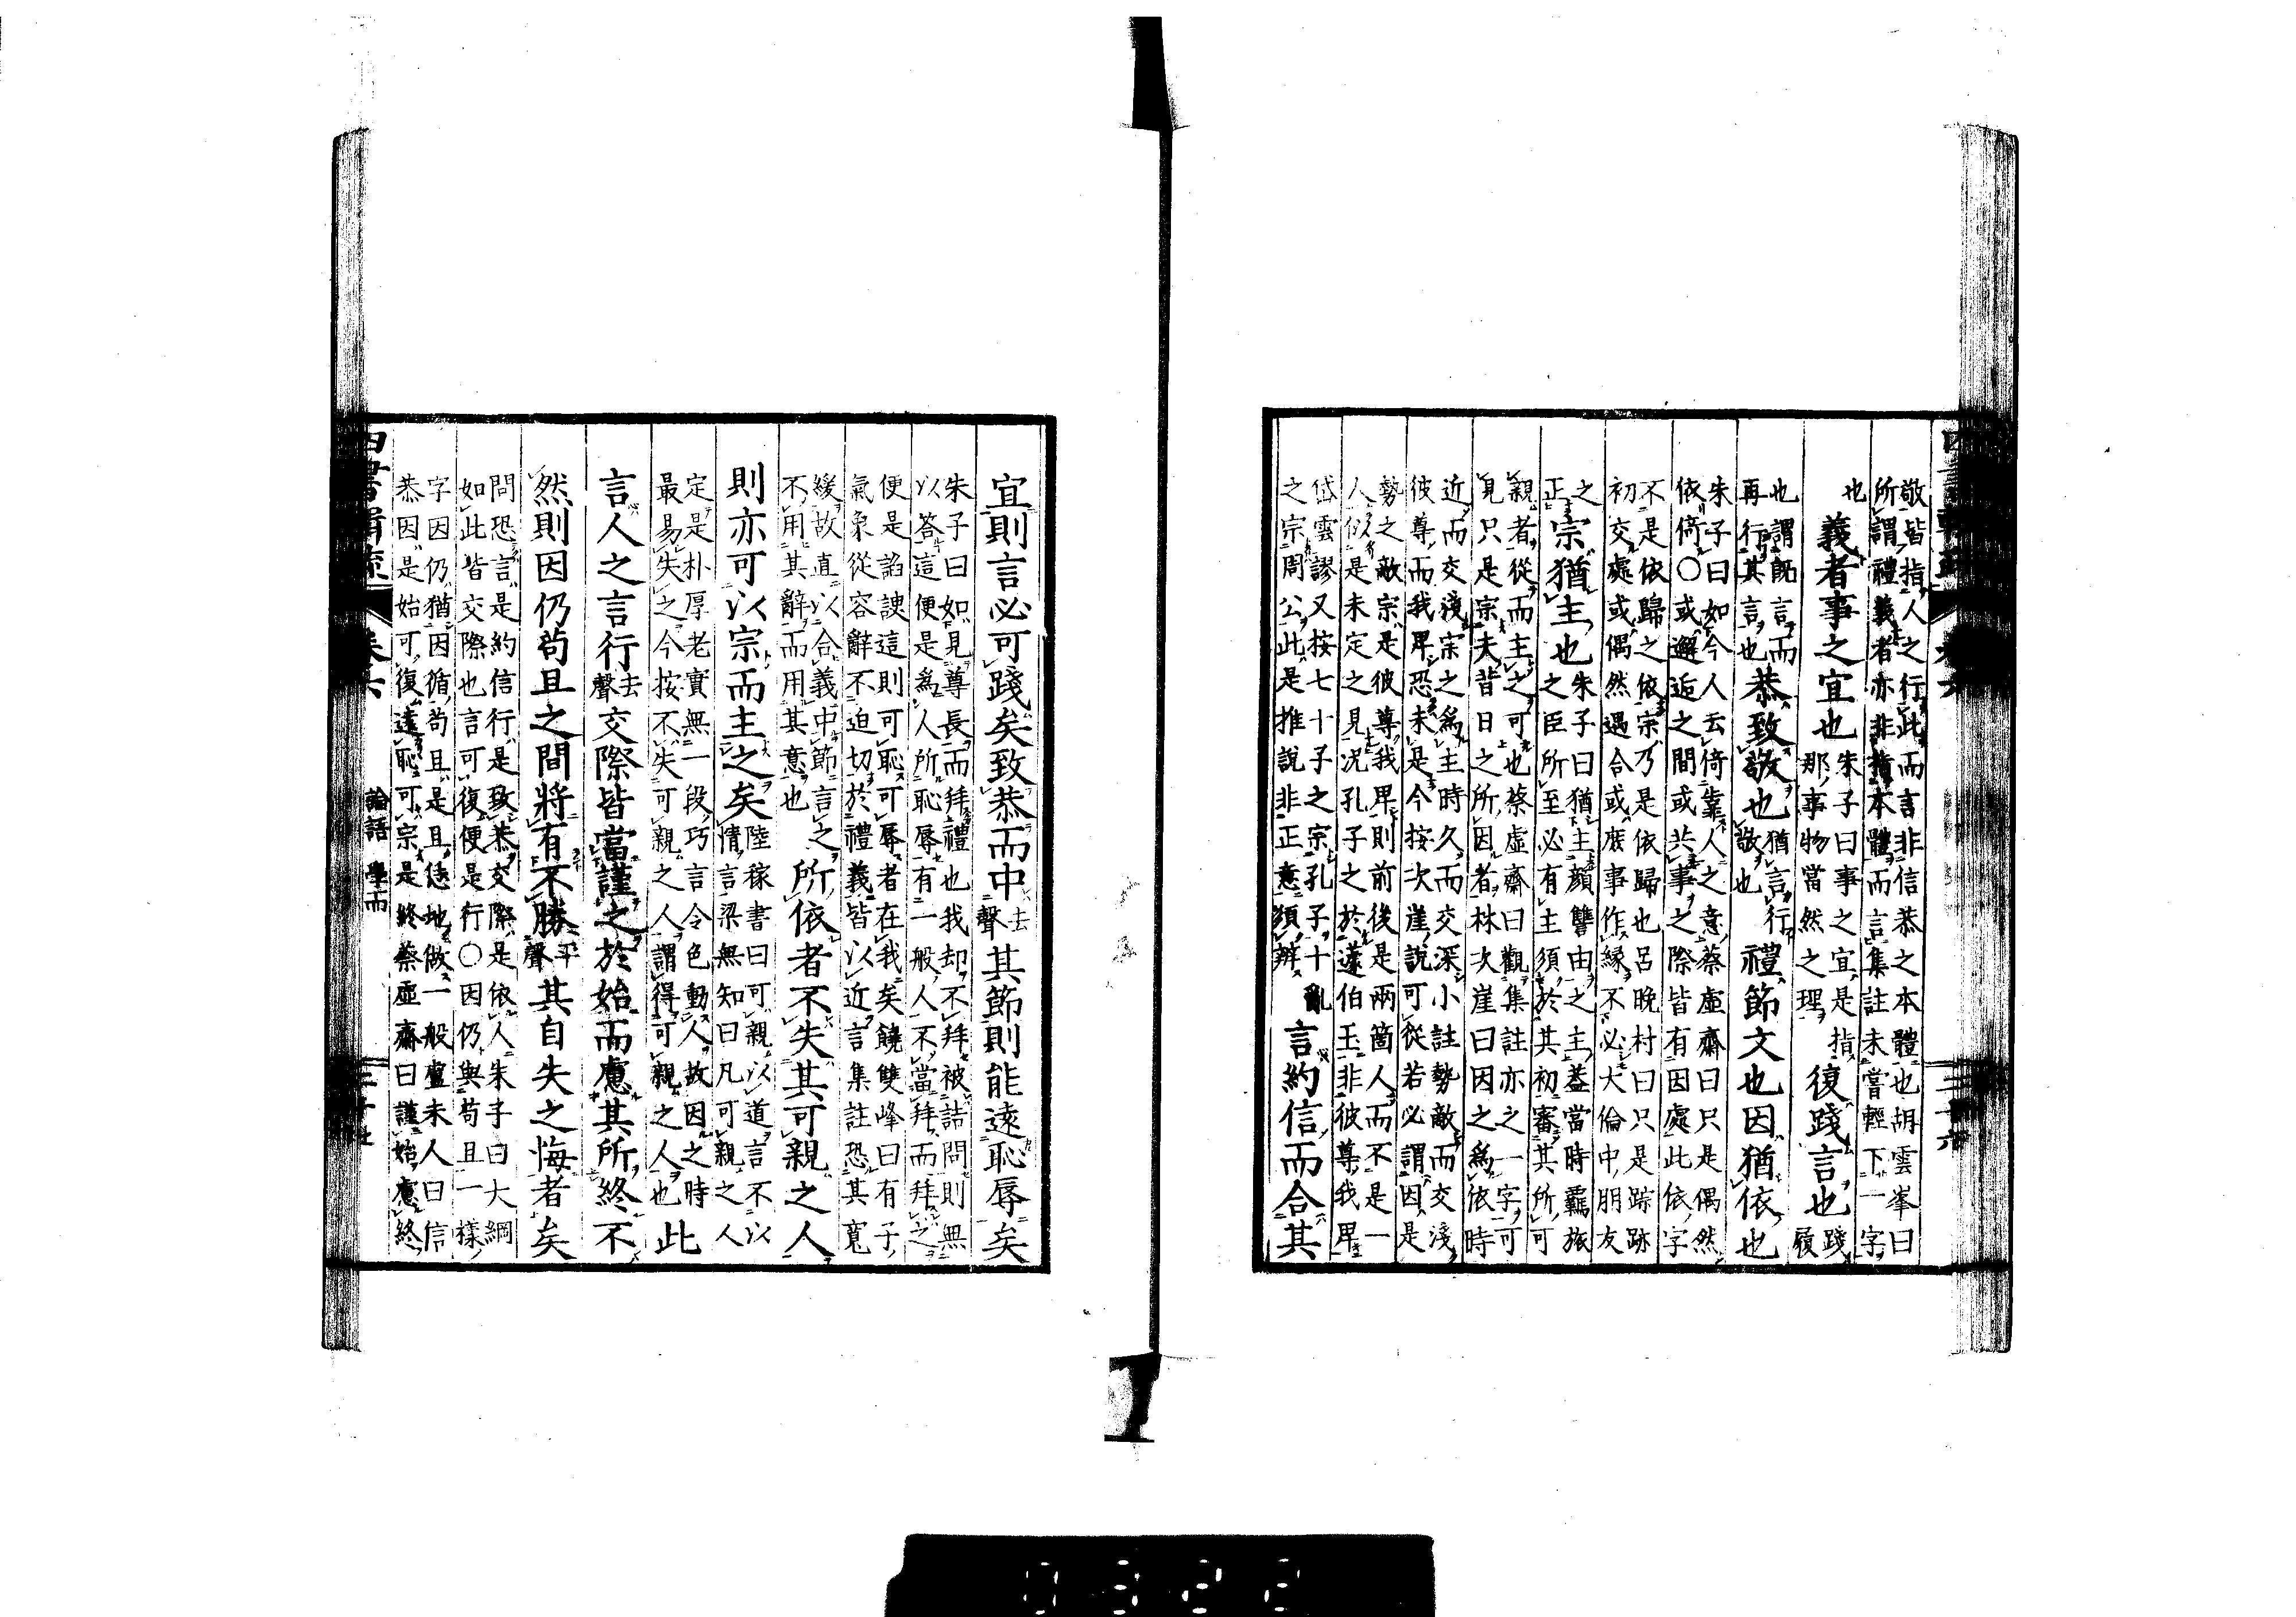 敬皆指人之行此而言非信恭之本體也胡雲峯曰
所謂禮義者亦非指本體而言集註未嘗輕下一字
也
義者事之宜也
朱子曰事之宜是指
那事物當然之理
復踐言也
踐履
也謂既言而
再行其言也
恭致敬也
猶言行
敬也
禮節文也因猶依也
朱子曰如今人云倚靠人之意蔡虛齋曰只是偶然
依倚○或邂逅之間或共事之際皆有因處此依字
不是依歸之依宗乃是依歸也呂晚村曰只是踪跡
初交處或偶然遇合或庶事作縁不必大倫中朋友
之
正
宗猶主也
朱子曰猶主顔讐由之主蓋當時羈旅
之臣所至必有主須於其初審其所可
親者從而主之可也蔡虛齋曰觀集註亦之一字可
見只是宗夫昔日之所因者林次崖曰因之爲依時
近而交淺宗之爲主時久而交深小註勢敵而交淺
彼尊而我卑恐未是今按次崖說可從若必謂因是
勢之敵宗是彼尊我卑則前後是兩箇人而不是一
人似是未定之見况孔子之於蘧伯玉非彼尊我卑
岱雲謬又按七十子之宗孔子十亂
之宗周公此是推說非正意須辨
言約信而合其
宜則言必可踐矣致恭而中
去
聲
其節則能遠恥辱矣
朱子曰如見尊長而拜禮也我却不拜被詰問則無
以答這便是爲人所恥辱有一般人不當拜而拜之
便是諂諛這則可恥可辱者在我矣饒雙峰曰有子
氣象從容辭不迫切於禮義皆以近言集註恐其寬
緩故直以合義中節言之
不用其辭而用其意也
所依者不失其可親之人
則亦可以宗而主之矣
陸稼書曰可親以道言不以
情言梁無知曰凡可親之人
定是朴厚老實無一段巧言令色動人故因之時
最易失之今按不失可親之人謂得可親之人也
此
言人之言行
去
聲
交際皆當謹之於始而慮其所終不
然則因仍苟且之間將有不勝
平
聲
其自失之悔者矣
問恐言是約信行是致恭交際是依人朱子曰大綱
如此皆交際也言可復便是行○因仍與苟且一樣
字因仍猶因循苟且是且恁地做一般盧未人曰信
恭因是始可復遠恥可宗是終蔡虛齋曰謹始慮終
論語 學而